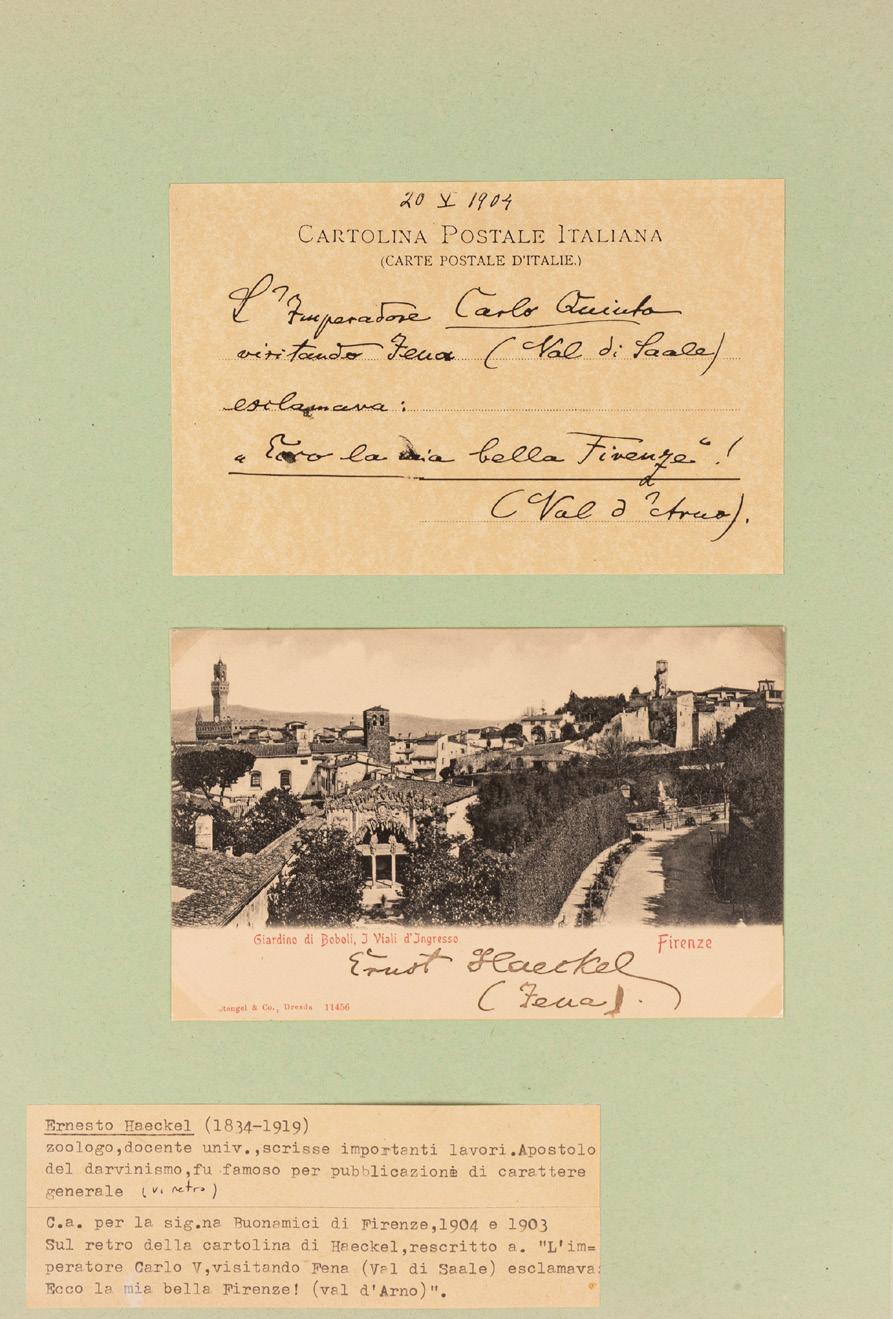 20 V 1904
CARTOLINA POSTALE ITALIANA
(CARTE POSTALE D'ITALIE.)
L'Imperadore Carlo Quinto
visitando Jena (Val di Saale)
esclamava:
„Ecco la mia bella Firenze“!
(Val d'Arno).
Giardino di Boboli, I Viali d'Ingresso
Firenze
Ernst Haeckel
(Jena).
Stengel & Co., Dresda 11456
Ernesto Haeckel (1834-1919)
zoologo,docente univ.,scrisse importanti lavori.Apostolo
del darvinismo,fu famoso per pubblicazioni di carattere
generale (vi retro)
C.a. per la sig.na Buonamici di Firenze,1904 e 1903
Sul retro della cartolina di Haeckel,rescritto a. "L'im=
peratore Carlo V,visitando Fena (Val di Saale) esclamava:
Ecco la mia bella Firenze! (val d'Arno)".